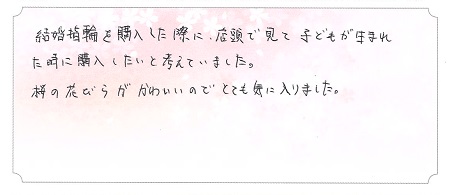 結婚指輪を購入した際に、店頭で見て 子どもが生まれ
た時に購入したいと考えていました。
桜の花びらが かわいいので とても気に入りました。